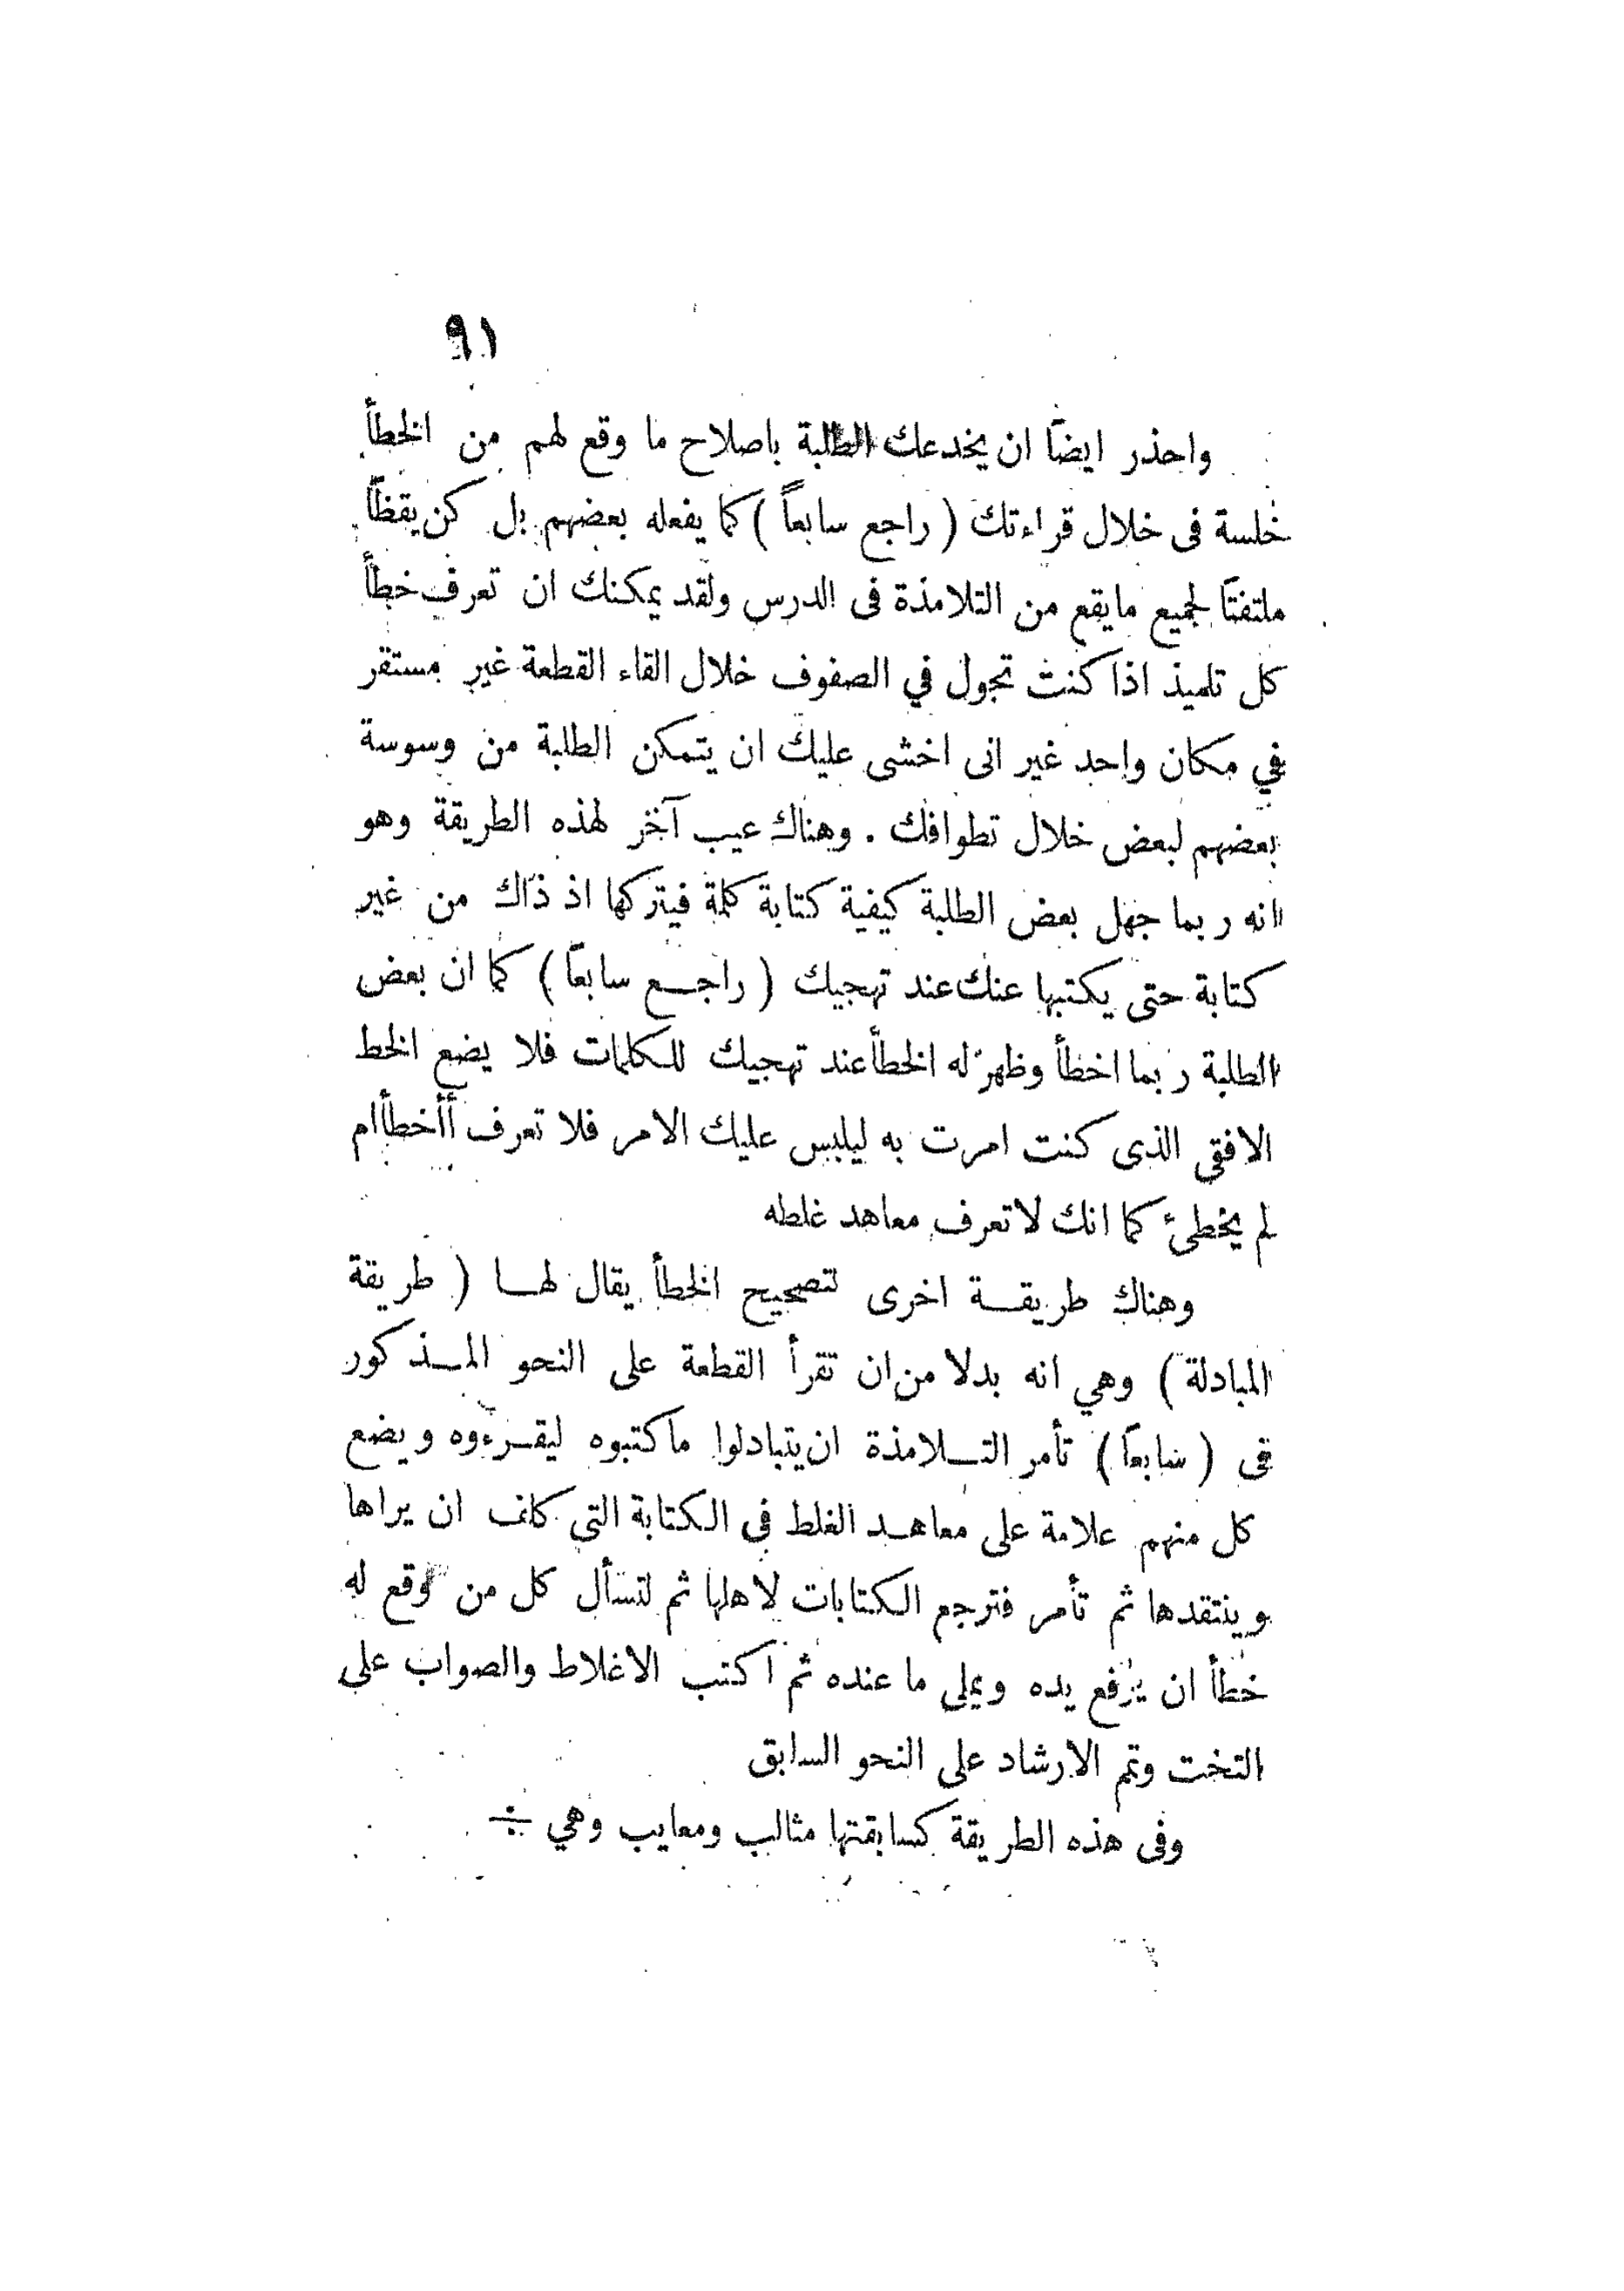 ٩١
واحذر ايضاً ان يخدعك الطلبة باصلاح ما وقع لهم من الخطأ
خلسة فى خلال قراءتك ( راجع سابعاً ) كما يفعله بعضهم بل كن يقظاً
ملتفتاً لجميع مايقع من التلامذة فى الدرس ولقد يمكنك ان تعرف خطأ
كل تلميذ اذا كنت تجول في الصفوف خلال القاء القطعة غير مستقر
في مكان واحد غير انى اخشى عليك ان يتمكن الطلبة من وسوسة
بعضهم لبعض خلال تطوافك . وهناك عيب آخر لهذه الطريقة وهو
انه ربما جهل بعض الطلبة كيفية كتابة كلمة فيتركها اذ ذاك من غير
كتابة حتى يكتبها عنك عند تهجيك ( راجع سابعاً ) كما ان بعض
الطلبة ربما اخطأ وظهر له الخطأ عند تهجيك للكلمات فلا يضع الخط
الافقى الذى كنت امرت به ليلبس عليك الامر فلا تعرف أأخطأ ام
لم يخطئ كما انك لا تعرف معاهد غلطه
وهناك طريقة اخرى لتصحيح الخطأ يقال لها ( طريقة
المبادلة ) وهي انه بدلا من ان تقرأ القطعة على النحو المذكور
فى ( سابعاً ) تأمر التلامذة ان يتبادلوا ما كتبوه ليقرءوه ويضع
كل منهم علامة على معاهد الغلط فى الكتابة التى كلف ان يراها
وينتقدها ثم تأمر فترجع الكتابات لاهلها ثم لتسأل كل من وقع له
خطأ ان يرفع يده ويملى ما عنده ثم اكتب الاغلاط والصواب على
التخت وتمم الارشاد على النحو السابق
وفى هذه الطريقة كسابقتها مثالب ومعايب وهي ÷